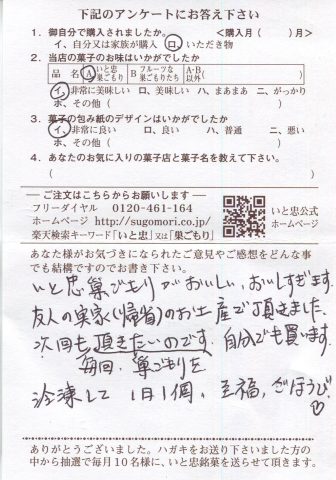 下記のアンケートにお答え下さい
1. 御自分で購入されましたか。 ＜購入月( )月＞
イ、自分又は家族が購入 ロ、いただき物
2. 当店の菓子のお味はいかがでしたか
品名 A いと忠巣ごもり B フルーツな巣ごもりたち A・B以外( )
イ、非常に美味しい ロ、美味しい ハ、まあまあ ニ、がっかり
ホ、その他( )
3. 菓子の包み紙のデザインはいかがでしたか
イ、非常に良い ロ、良い ハ、普通 ニ、悪い
ホ、その他( )
4. あなたのお気に入りの菓子店と菓子名を教えて下さい。
( )
ご注文はこちらからお願いします
フリーダイヤル 0120-461-164
ホームページ http://sugomori.co.jp/
楽天検索キーワード「いと忠」又は「巣ごもり」
いと忠公式
ホームページ
あなた様がお気づきになられたご意見やご感想をどんな事
でも結構ですのでお書き下さい。
いと忠巣ごもりがおいしい、おいしすぎます。
友人の実家(帰省)のお土産で頂きました。
次回も頂きたいのです。自分でも買います。
毎回、巣ごもりを
冷凍して1日1個、至福、ごほうび♡
ありがとうございました。ハガキをお送り下さいました方の
中から抽選で毎月10名様に、いと忠銘菓を送らせて頂きます。